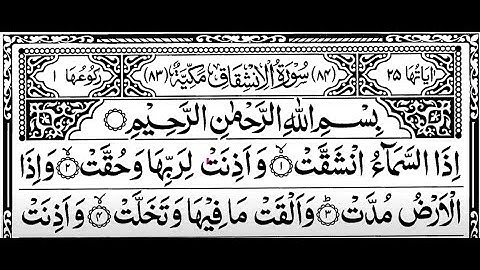 اٰيَاتُهَا ٢٥ (٨٤) سُوْرَةُ الْاِنْشِقَاقِ مَكِّيَّةٌ (٨٣) رُكُوْعُهَا ١
بِسْمِ اللّٰهِ الرَّحْمٰنِ الرَّحِيْمِ
اِذَا السَّمَآءُ انْشَقَّتْ ۙ‏﴿۱﴾ وَاَذِنَتْ لِرَبِّهَا وَحُقَّتْ ۙ‏﴿۲﴾ وَاِذَا
الْاَرْضُ مُدَّتْ ؕ‏﴿۳﴾ وَاَلْقَتْ مَا فِيْهَا وَتَخَلَّتْ ۙ‏﴿۴﴾ وَاَذِنَتْ